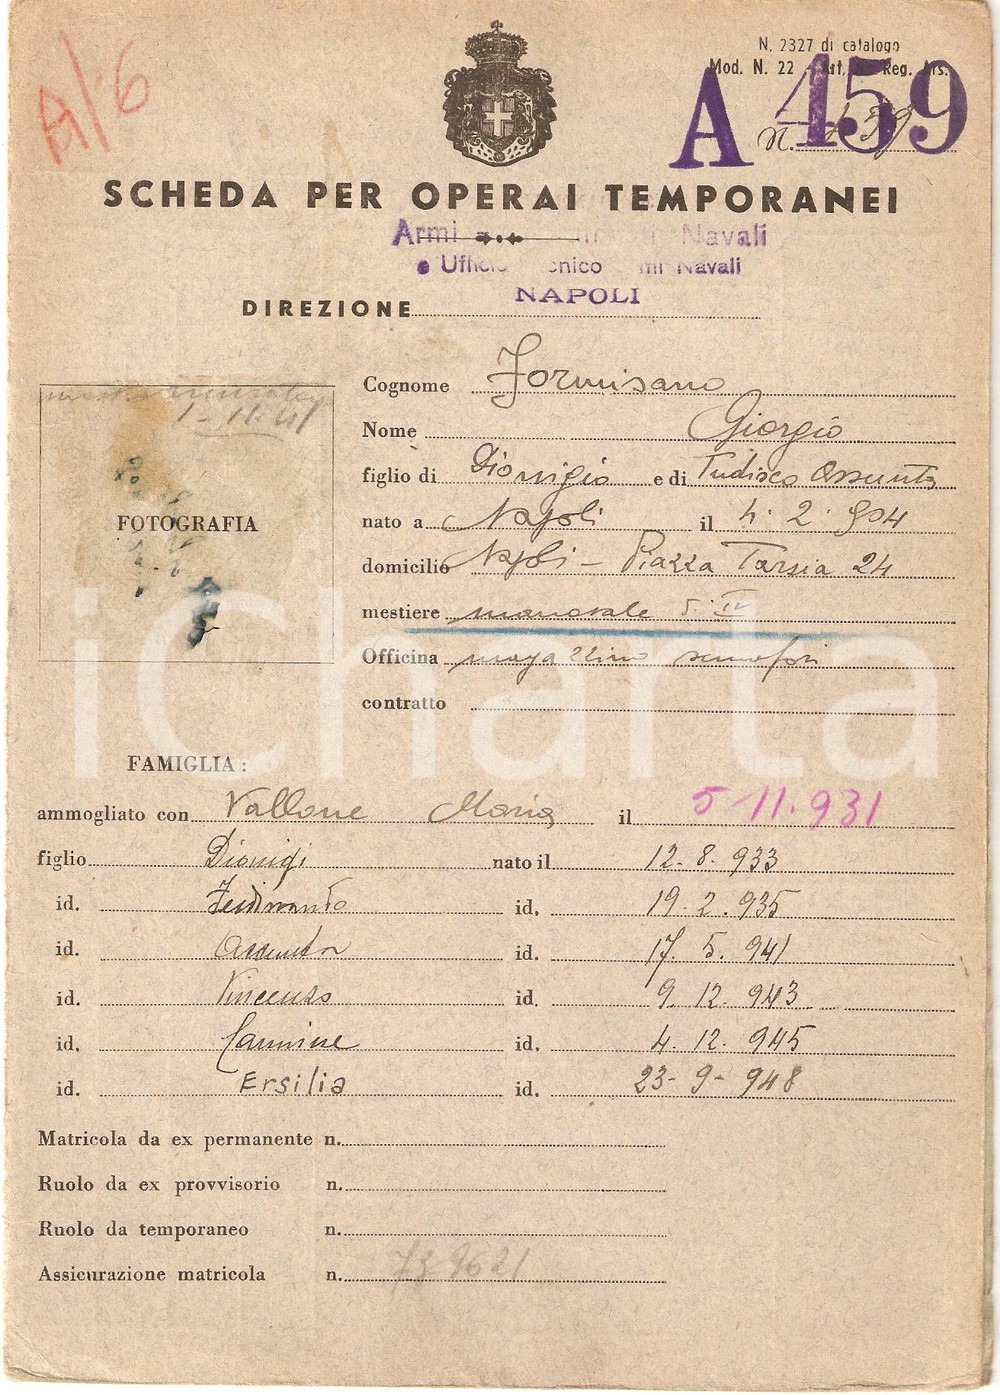 A/6
N. 2327 di catalogo
Mod. N. 22 - Art. Reg. Ars.
A 459
N. 459
SCHEDA PER OPERAI TEMPORANEI
Armi Navali
e Ufficio Tecnico Armi Navali
NAPOLI
DIREZIONE
Cognome Formisano
Nome Giorgio
figlio di Dionigio e di Tudisco Assunta
nato a Napoli il 4. 2. 904
domicilio Napoli - Piazza Tarsia 24
mestiere manovale IV
Officina magazzino
contratto
1-11-41
FOTOGRAFIA
FAMIGLIA :
ammogliato con Vallone Maria il 5-11.931
figlio Dionigi nato il 12-8.933
id. Ferdinando id. 19-2.935
id. Assunta id. 17. 5. 941
id. Vincenzo id. 9. 12. 943
id. Carmine id. 4. 12. 945
id. Ersilia id. 23-9-948
Matricola da ex permanente n.
Ruolo da ex provvisorio n.
Ruolo da temporaneo n.
Assicurazione matricola n. 739621
iCharta